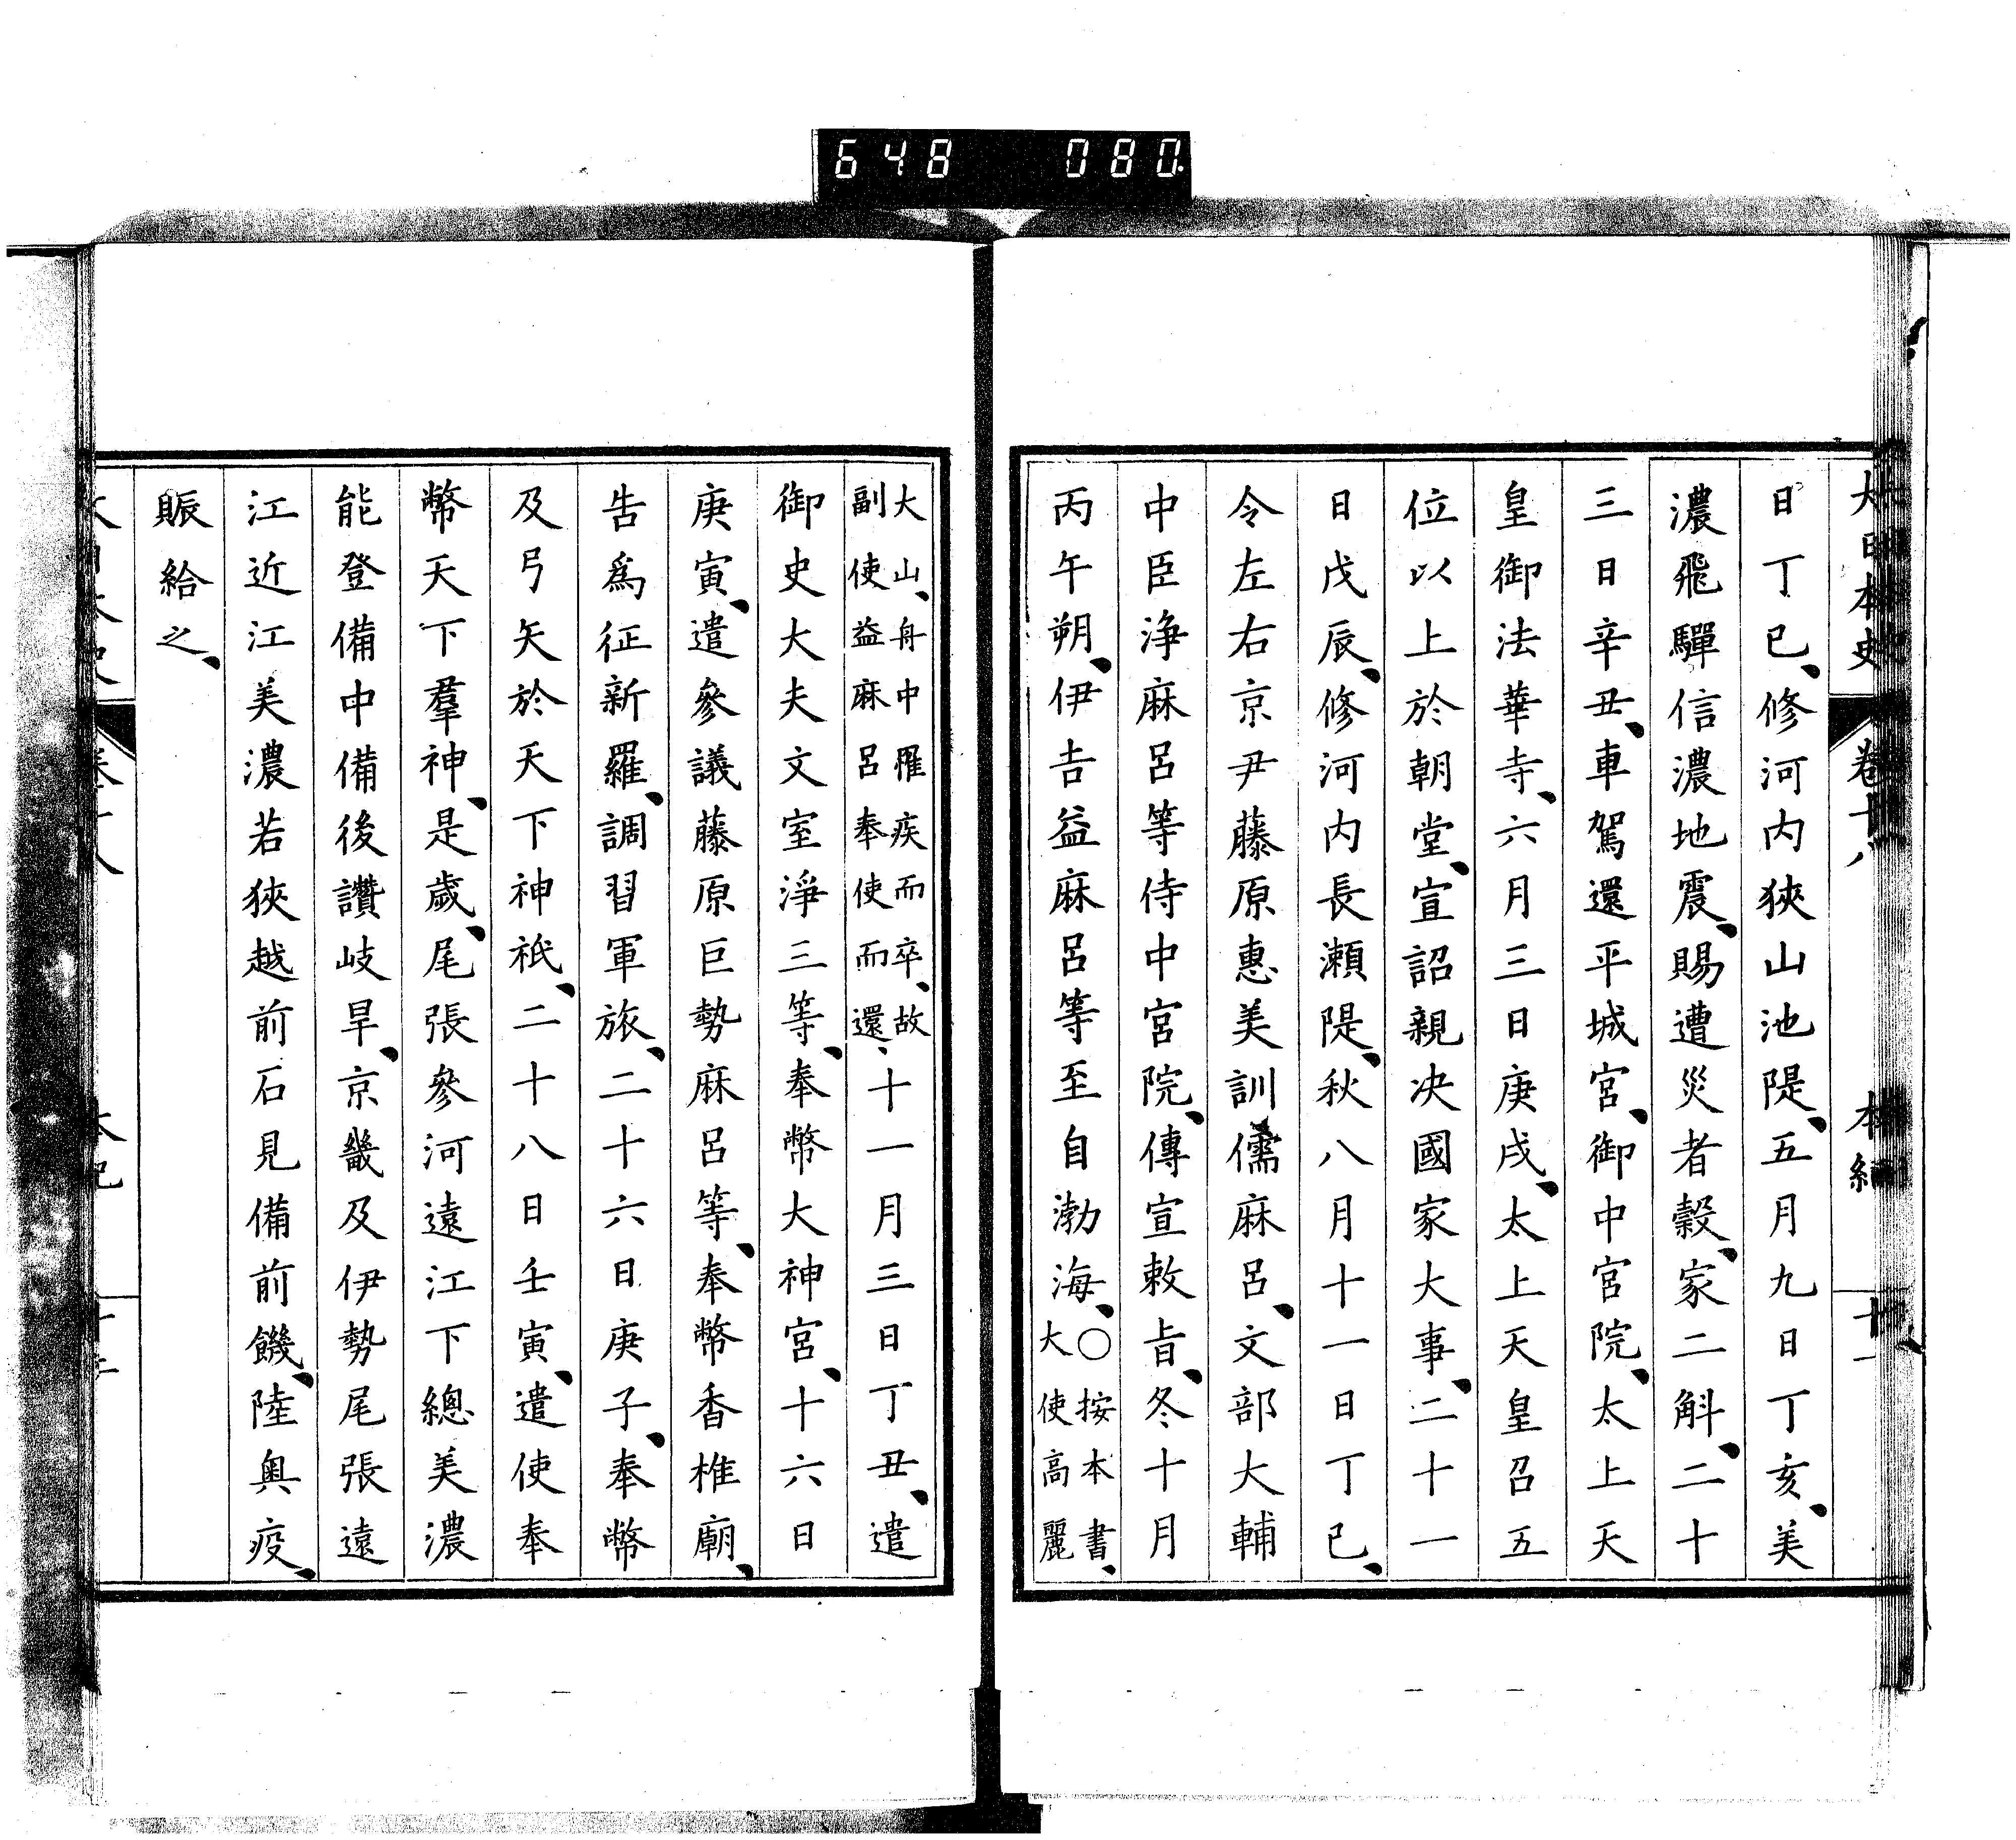 648 080
大日本史 卷十八 本紀 十一
日丁巳、修河内狹山池隄、五月九日丁亥、美
濃飛驒信濃地震、賜遭災者穀、家二斛、二十
三日辛丑、車駕還平城宮、御中宮院、太上天
皇御法華寺、六月三日庚戌、太上天皇召五
位以上於朝堂、宣詔親決國家大事、二十一
日戊辰、修河内長瀬隄、秋八月十一日丁巳、
令左右京尹藤原惠美訓儒麻呂、文部大輔
中臣淨麻呂等侍中宮院、傳宣敕旨、冬十月
丙午朔、伊吉益麻呂等至自渤海、○按本書、大使高麗
大山、舟中罹疾而卒、故副使益麻呂奉使而還、十一月三日丁丑、遣
御史大夫文室淨三等、奉幣大神宮、十六日
庚寅、遣參議藤原巨勢麻呂等、奉幣香椎廟、
告爲征新羅、調習軍旅、二十六日庚子、奉幣
及弓矢於天下神祇、二十八日壬寅、遣使奉
幣天下羣神、是歲、尾張參河遠江下總美濃
能登備中備後讚岐旱、京畿及伊勢尾張遠
江近江美濃若狹越前石見備前饑、陸奧疫、
賑給之、